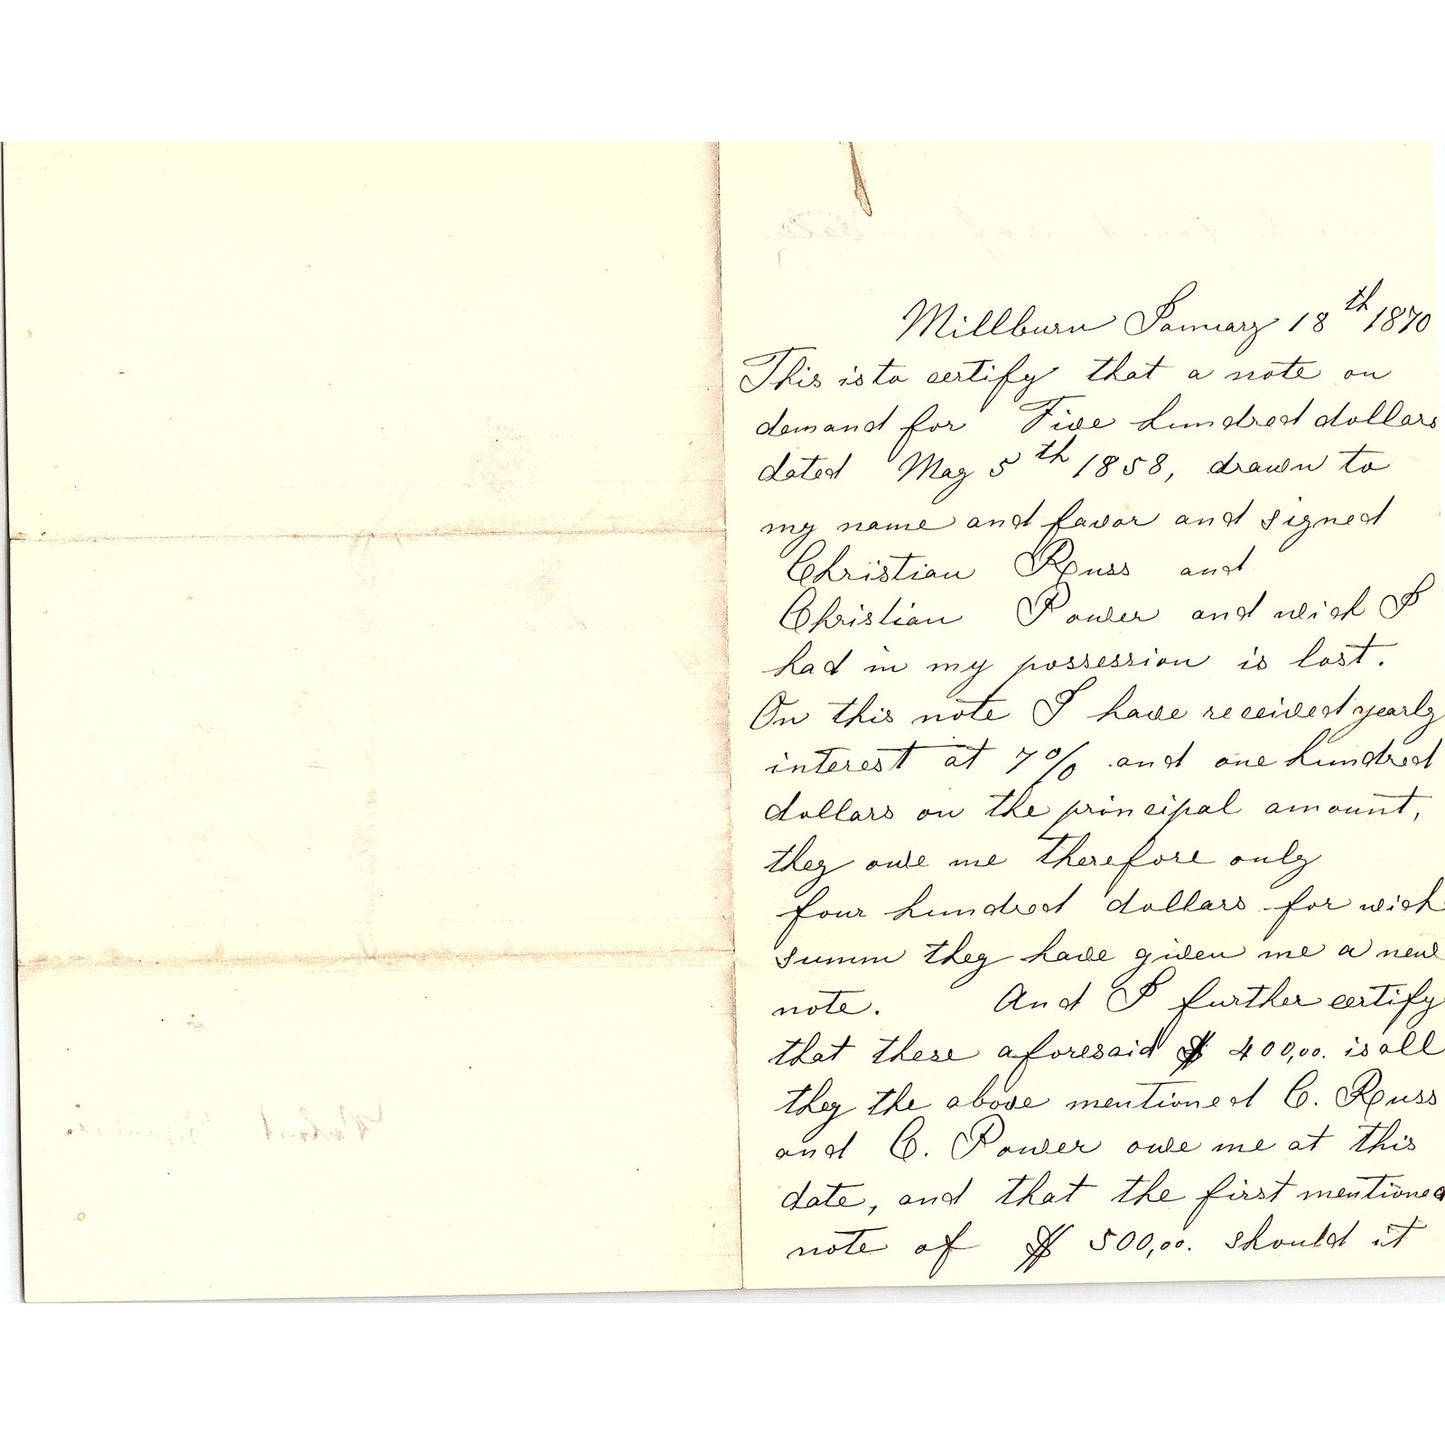 Millburn January 18th 1870
This is to certify that a note on
demand for Five hundred dollars
dated May 5th 1858, drawn to
my name and favor and signed
Christian Russ and
Christian Power and wich I
had in my possession is lost.
On this note I have received yearly
interest at 7% and one hundred
dollars on the principal amount,
they owe me therefore only
four hundred dollars for wich
summ they have given me a new
note. And I further certify
that these aforesaid $ 400,00. is all
they the above mentioned C. Russ
and C. Power owe me at this
date, and that the first mentioned
note of $ 500,00. should it